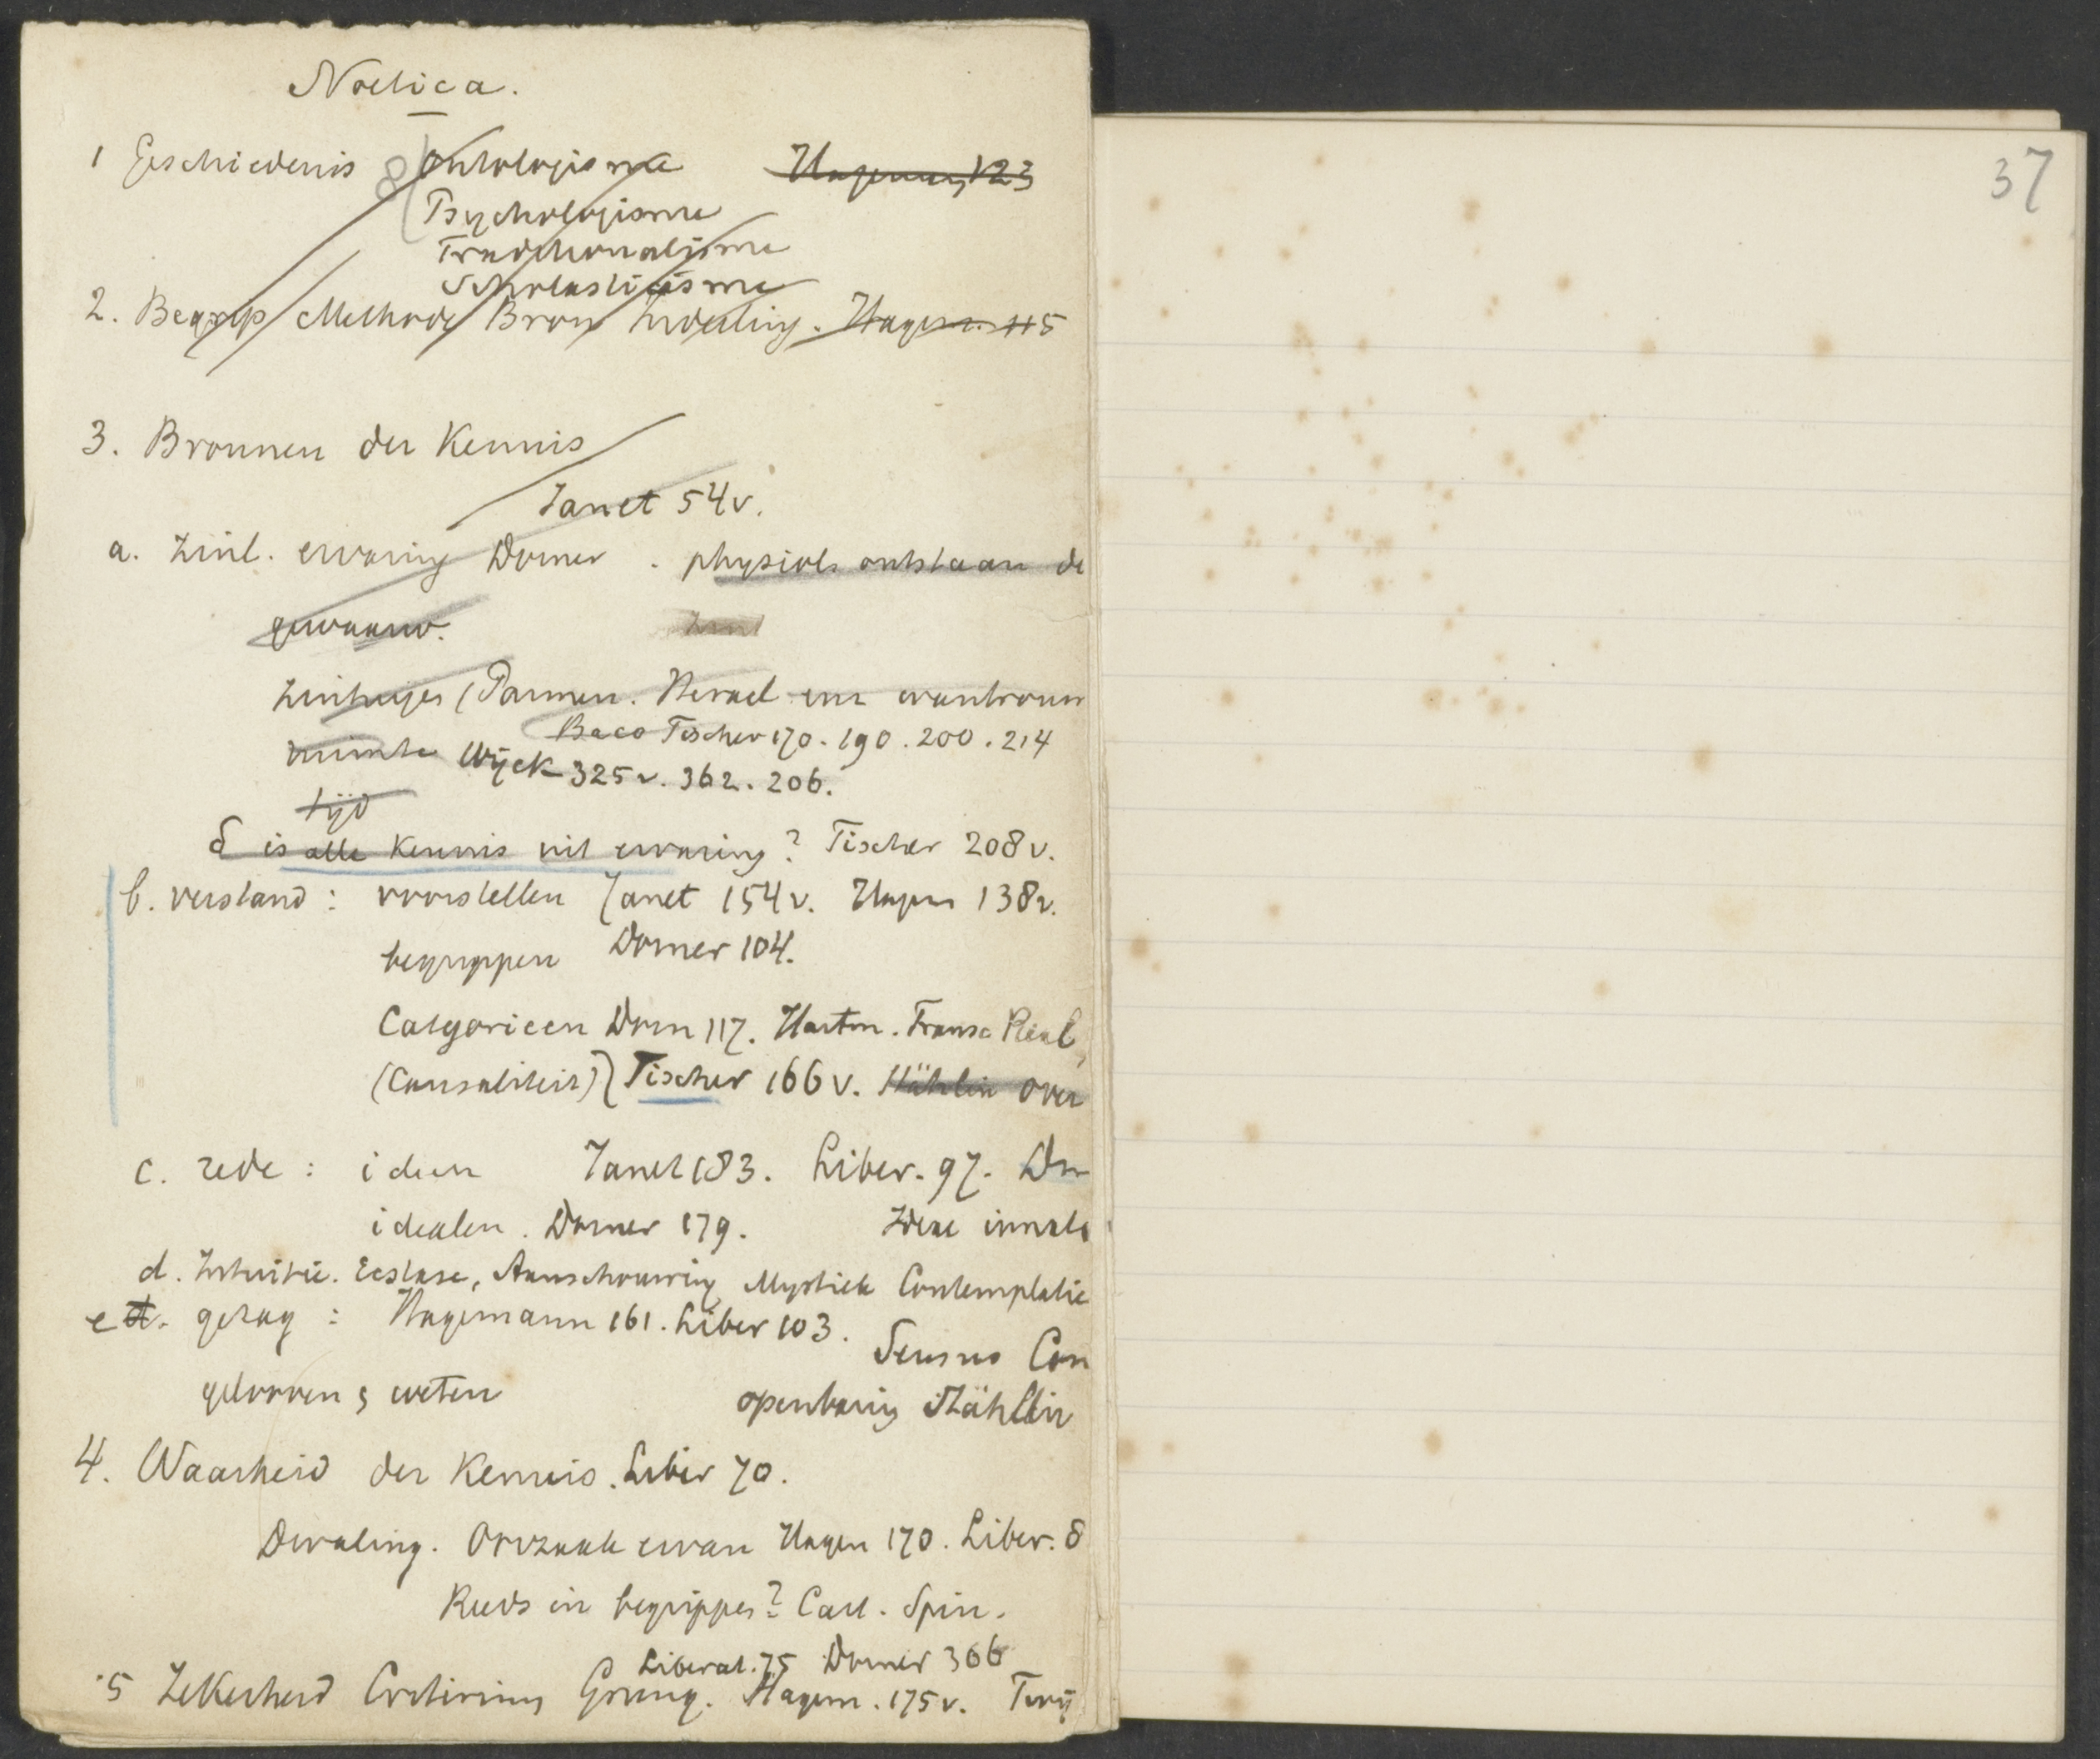 Noetica.
1 Geschiedenis Ontologisme Hagemann 123
Psychologisme
Traditionalisme
Scholasticisme
2. Begrip Methode Bron Indeeling. Hagem. 115
3. Bronnen der Kennis
Janet 54v.
a. Zinl. ervaring Dorner. physiol. ontstaan de
gewaarw.
Zintuigen (Parmen. Heracl
Baco Fischer 170. 190. 200. 214
ruimte Wijck 325v. 362. 206.
tijd
δ is alle Kennis uit ervaring? Fischer 208v.
b. verstand: voorstellen Janet 154v. Hagem 138v.
begrippen Dorner 104.
Categorieen Dorn 117. Hartm. Transc Real
(Causaliteit) Fischer 166v. Stählin over
c. rede: ideen Janet 183. Liber. 97. Dor
idealen. Dorner 179. Ideae innata
d. Intuitie. Ecstase, Aanschouwing Mystiek Contemplatie
e d. gezag: Hagemann 161. Liber 103.
Sensus Com
gelooven & weten openbaring Stählin
4. Waarheid der Kennis. Liber 70.
Dwaling. Oorzaak ervan Hagen 170. Liber. 8
Reeds in begrippen? Cart. Spin.
Liberat. 75 Dorner 366
5 Zekerheid Criterium Grung. Hagem. 175v. Twij
37